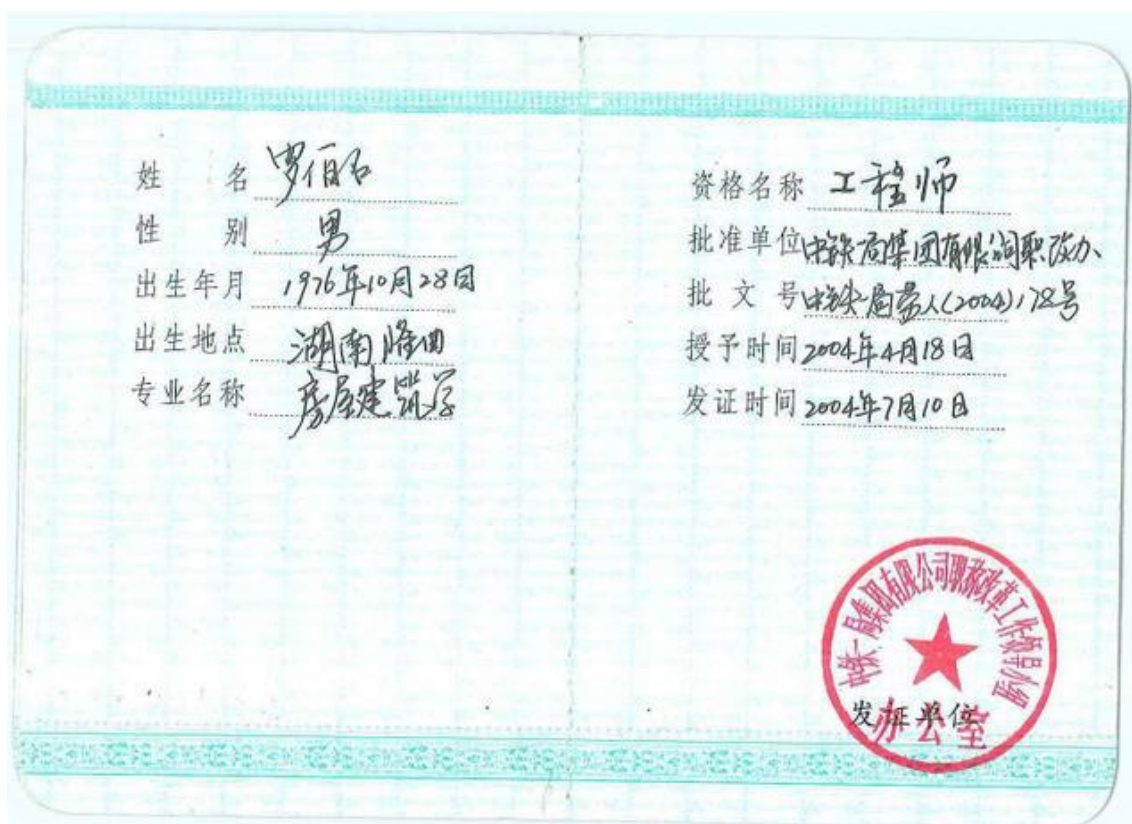 姓 名 罗佰石
性 别 男
出生年月 1976年10月28日
出生地点 湖南隆回
专业名称 房屋建筑学
资格名称 工程师
批准单位 中铁一局集团有限公司职改办
批文号 中铁一局劳人(2004)178号
授予时间 2004年4月18日
发证时间 2004年7月10日
中铁一局集团有限公司职称改革工作领导小组
办公室
发证单位